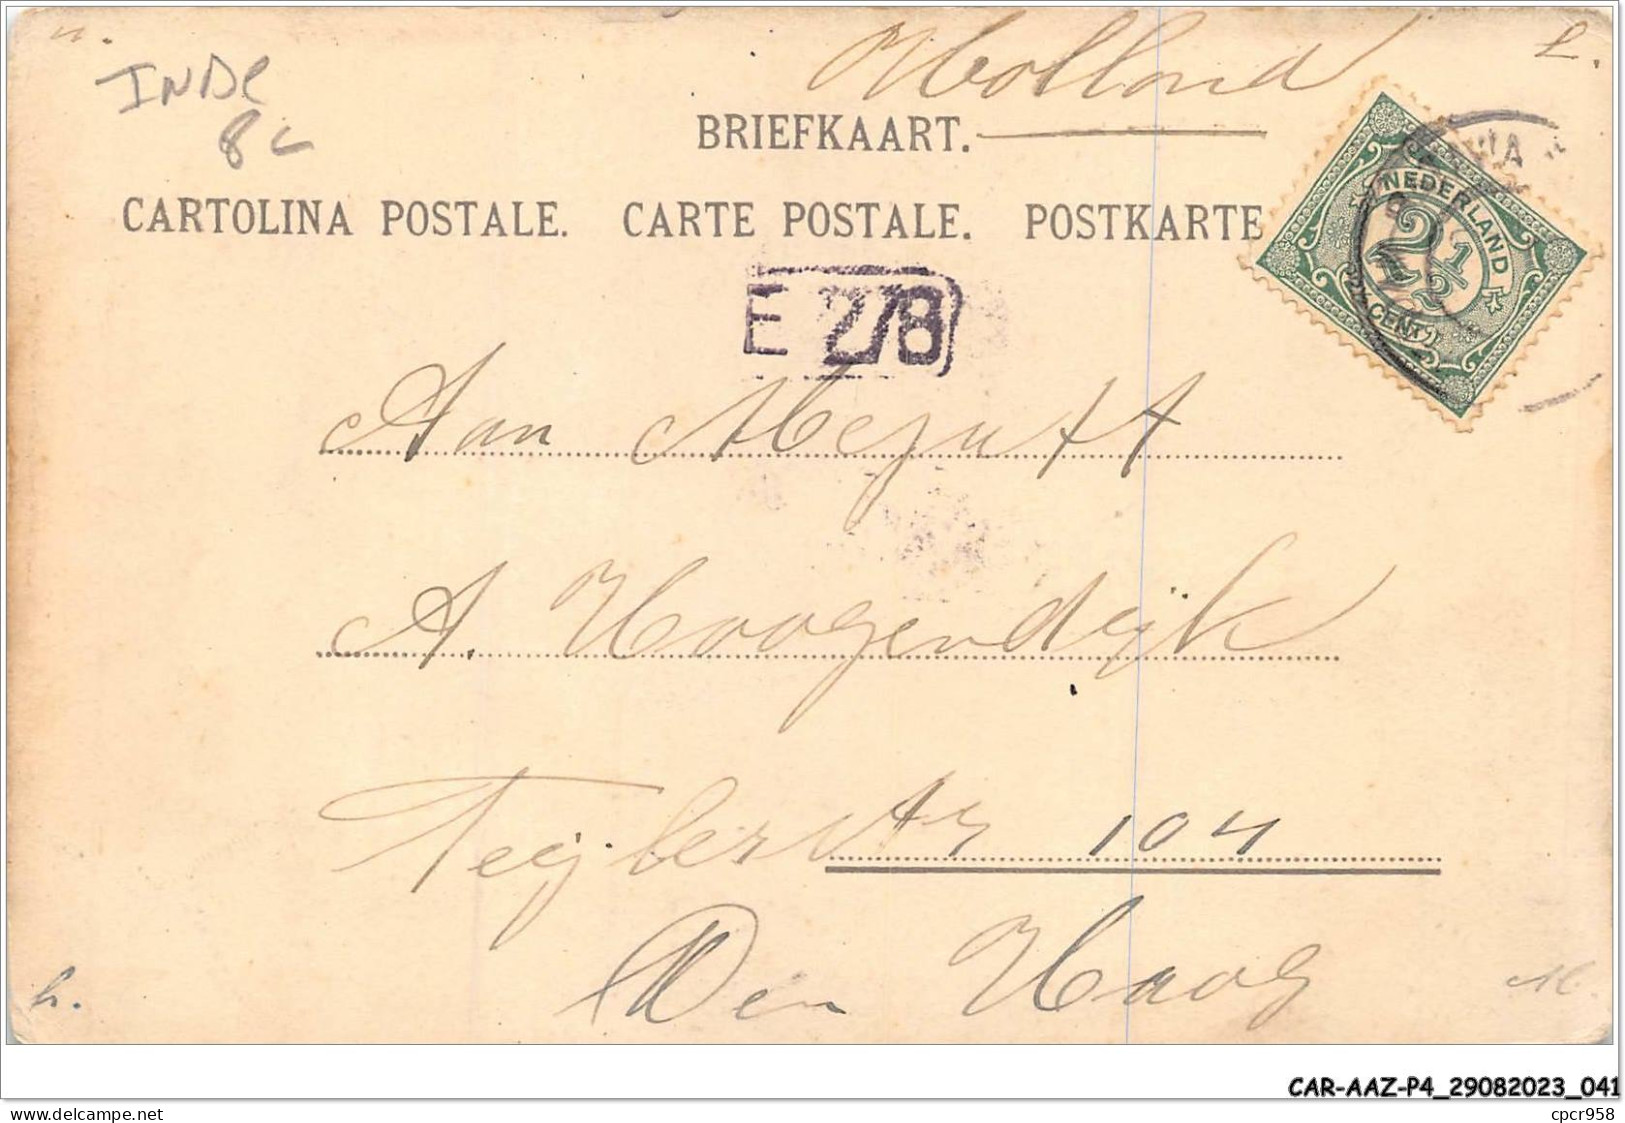 Holland
L.
INDE
8c
BRIEFKAART.
CARTOLINA POSTALE. CARTE POSTALE. POSTKARTE
NEDERLAND
2 1/2
CENT
E 278
Aan Mejuff
A. Hoogendijk
Teijlerstr 104
Den Haag
h.
M.
CAR-AAZ-P4_29082023_041
cpcr958